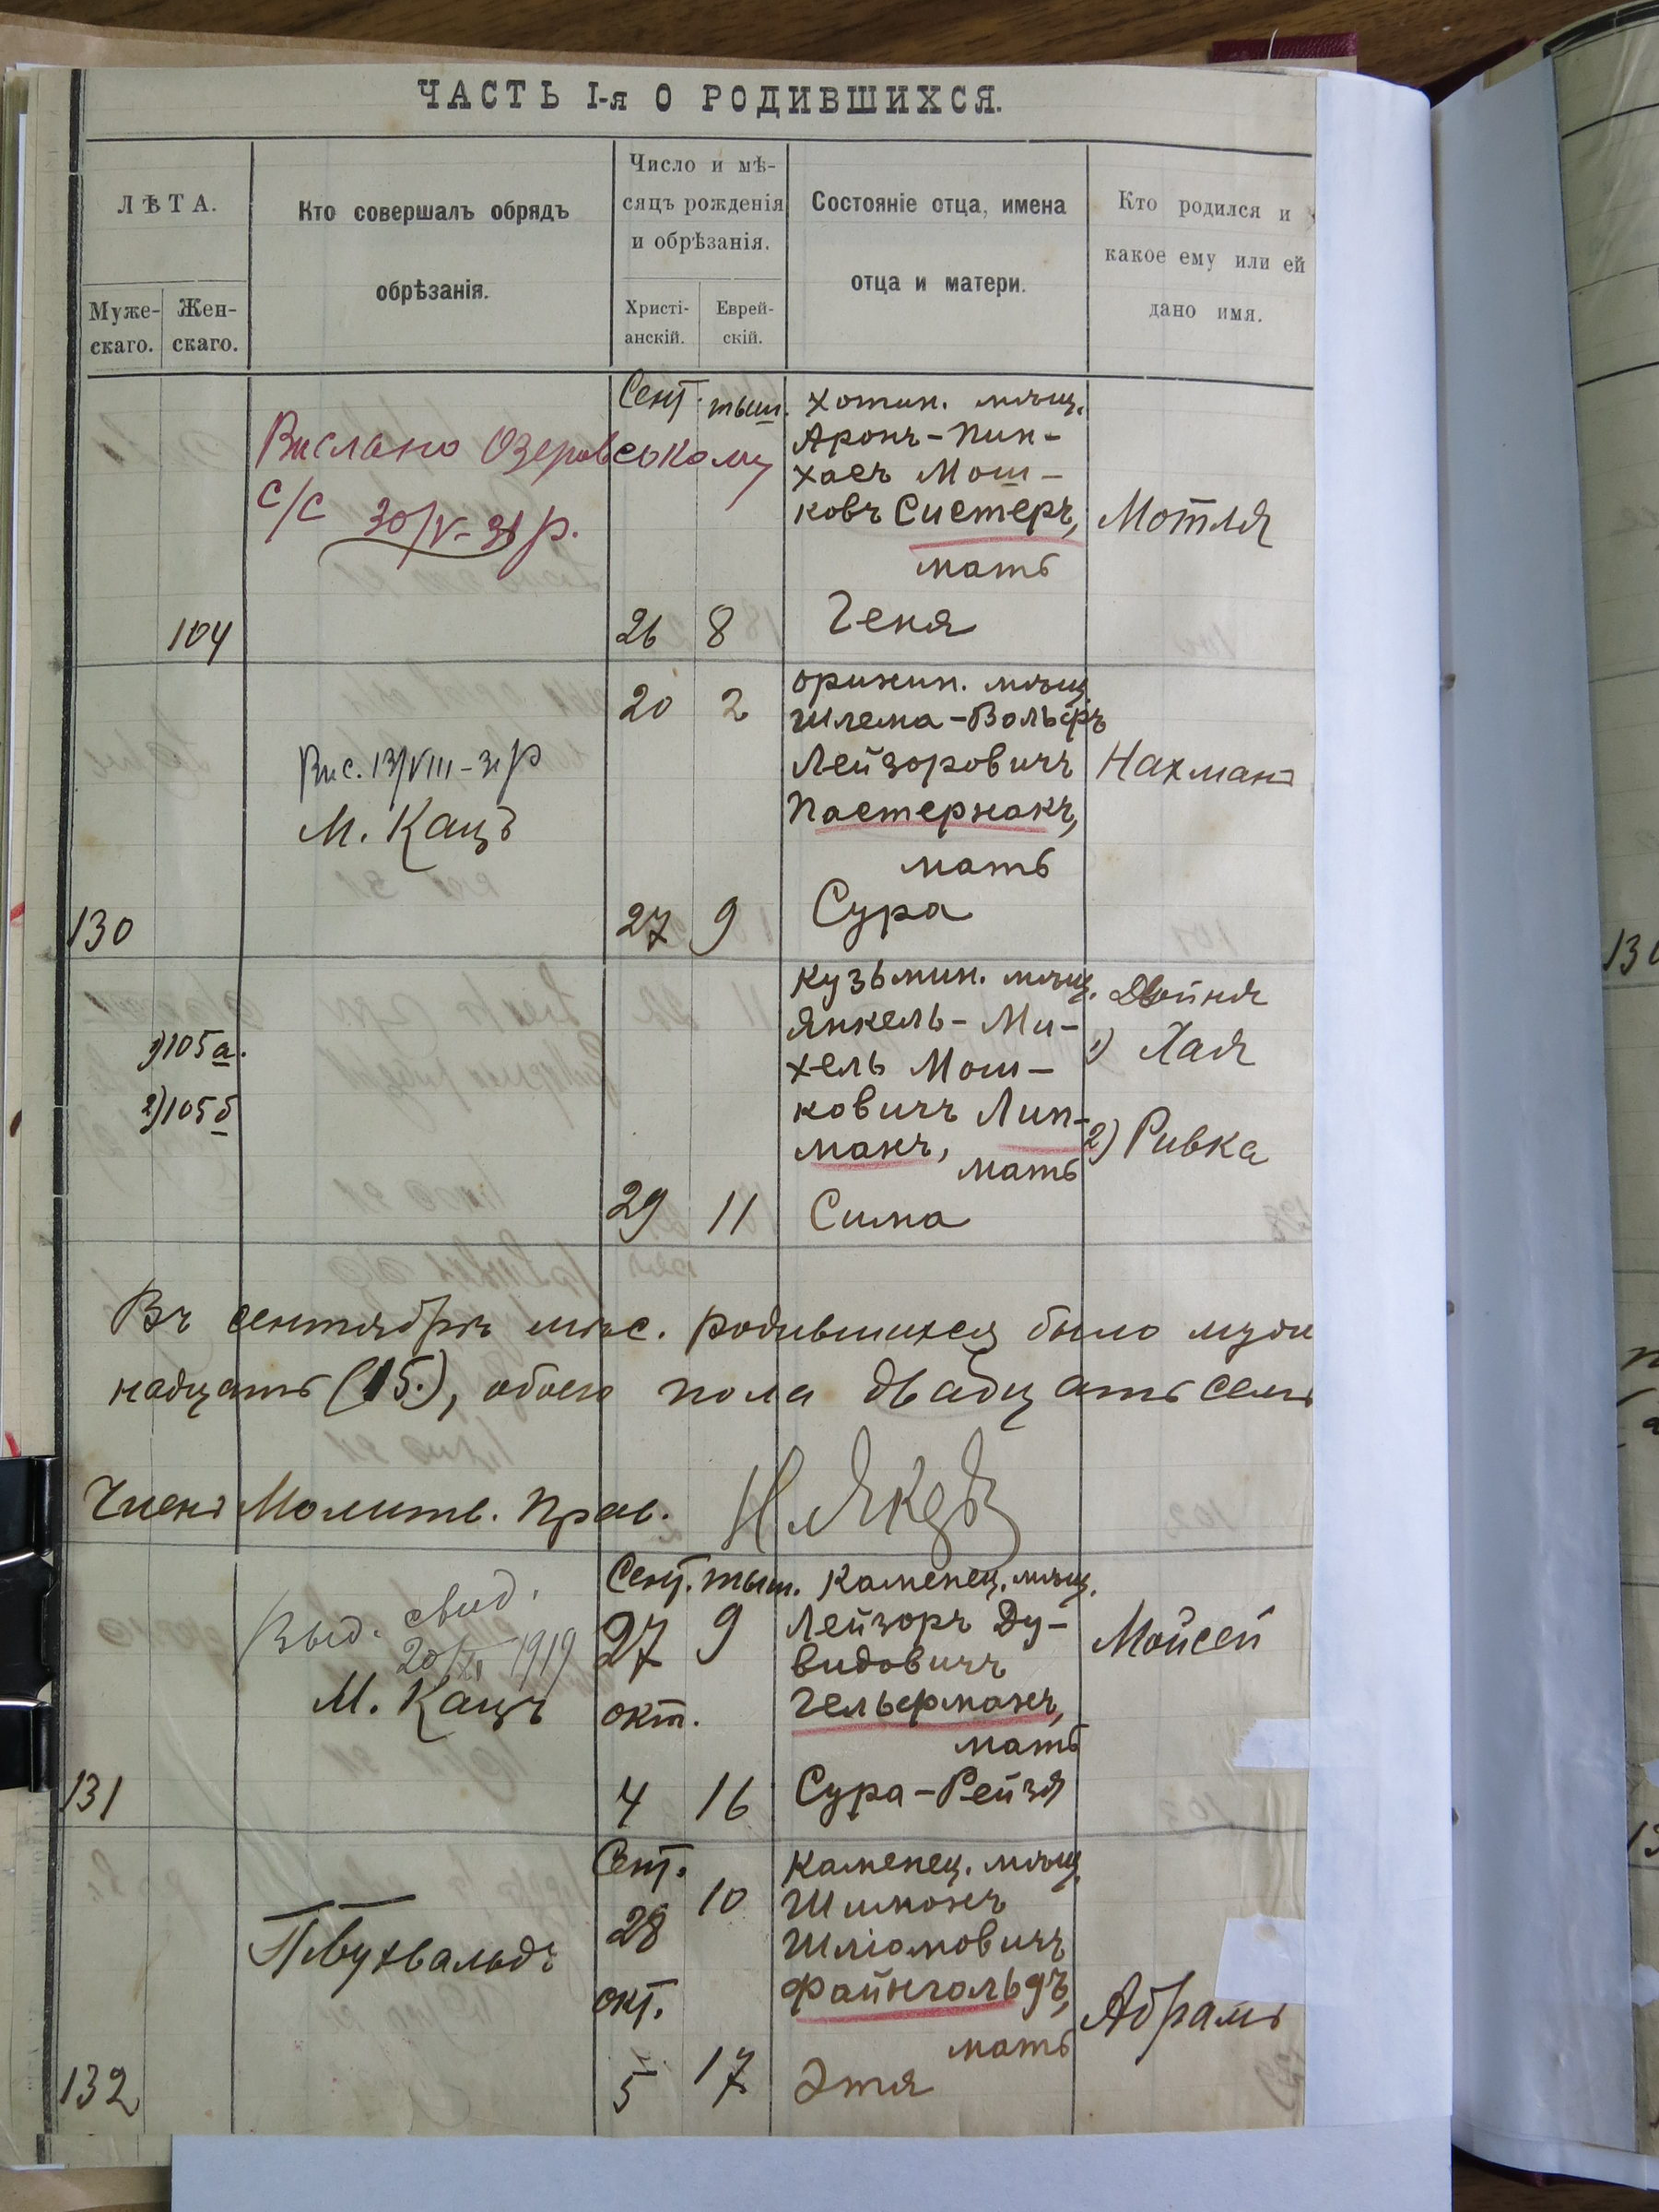 ЧАСТЬ I-я О РОДИВШИХСЯ.
ЛѢТА.
Муже-
скаго.
Жен-
скаго.
Кто совершалъ обрядъ
обрѣзанія.
Число и мѣ-
сяцъ рожденія
и обрѣзанія.
Христі-
анскій.
Еврей-
скій.
Состояніе отца, имена
отца и матери.
Кто родился и
какое ему или ей
дано имя.
Сент. тыш. хотин. мѣщ.
Вислано Озеровському
с/с 30/V-31 р.
Аронъ-Пин-
хасъ Мош-
ковъ Систеръ,
мать
Геня
Мотля
104
26 8
20 2
оринин. мѣщ.
Шлема-Вольфъ
Лейзоровичъ
Пастернакъ,
мать
Сура
Нахманъ
Вис. 13/VIII-31 р
М. Кацъ
130
27 9
кузьмин. мѣщ.
Янкель-Ми-
хель Мош-
ковичъ Лип-
манъ,
мать
Сима
Двойня
1) Хая
2) Ривка
1) 105а.
2) 105б
29 11
Въ сентябрѣ мѣс. родившихся было муж
надцать (15.), обоего пола двадцать семь
Членъ Молитв. Прав.
Сент. тыш. Каменец. мѣщ.
Выд. свид.
1919
М. Кацъ
27 9
окт.
4 16
Лейзоръ Ду-
видовичъ
Гельфманъ,
мать
Сура-Рейзя
Мойсей
131
Сент.
28 10
окт.
5 17
Каменец. мѣщ.
Шимонъ
Шліомовичъ
Файнгольдъ,
мать
Этя
Абрамъ
П Бухвальдъ
132